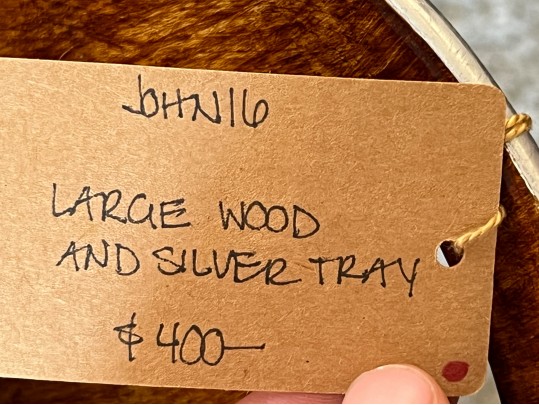 JOHN16
LARGE WOOD
AND SILVER TRAY
$400—